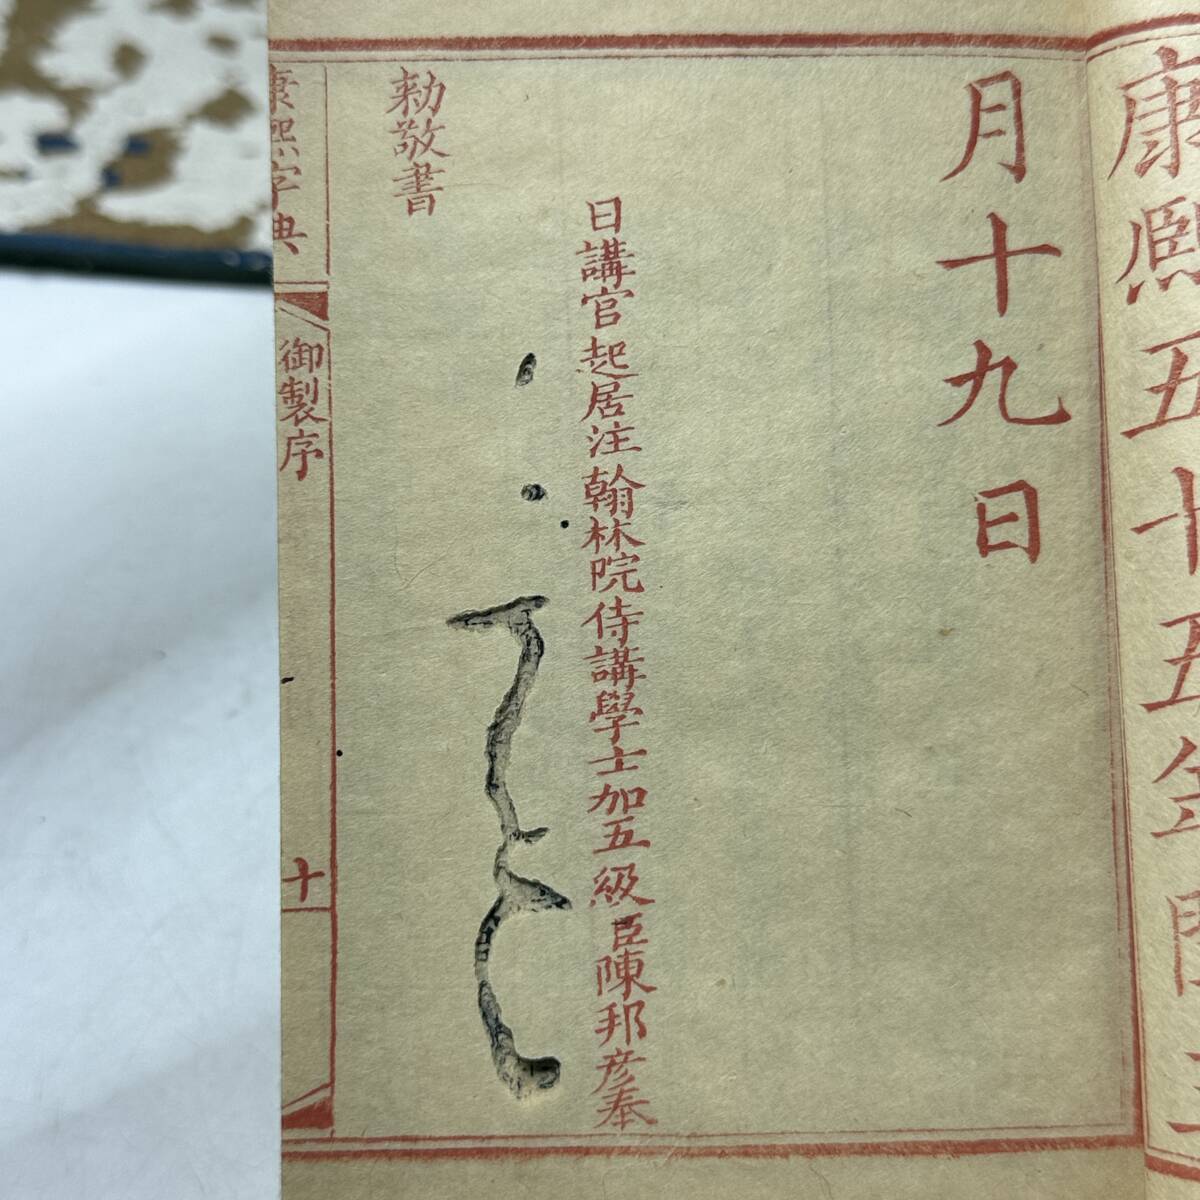 康熙五十五年閏三
月十九日
日講官起居注翰林院侍講學士加五級臣陳邦彥奉
勅敬書
康熙字典
御製序
十